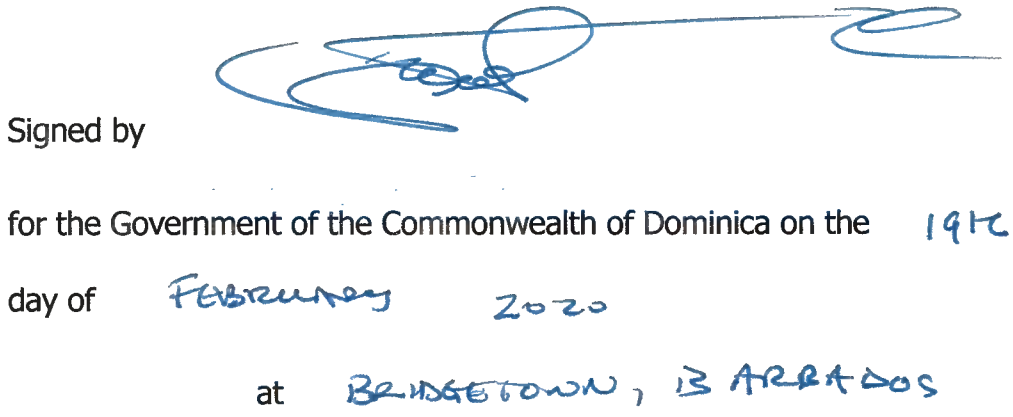 Signed by
for the Government of the Commonwealth of Dominica on the 19th
day of FEBRUARY 2020
at BRIDGETOWN, BARBADOS